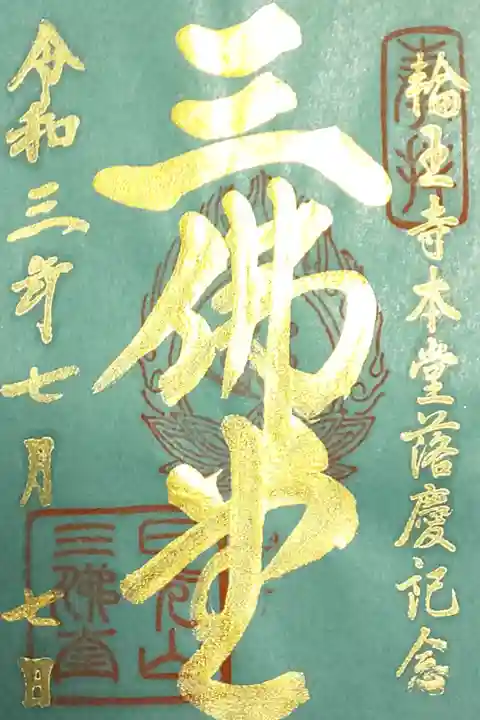 奉拝
輪王寺本堂落慶記念
三佛堂
令和三年七月七日
日光山
三佛堂